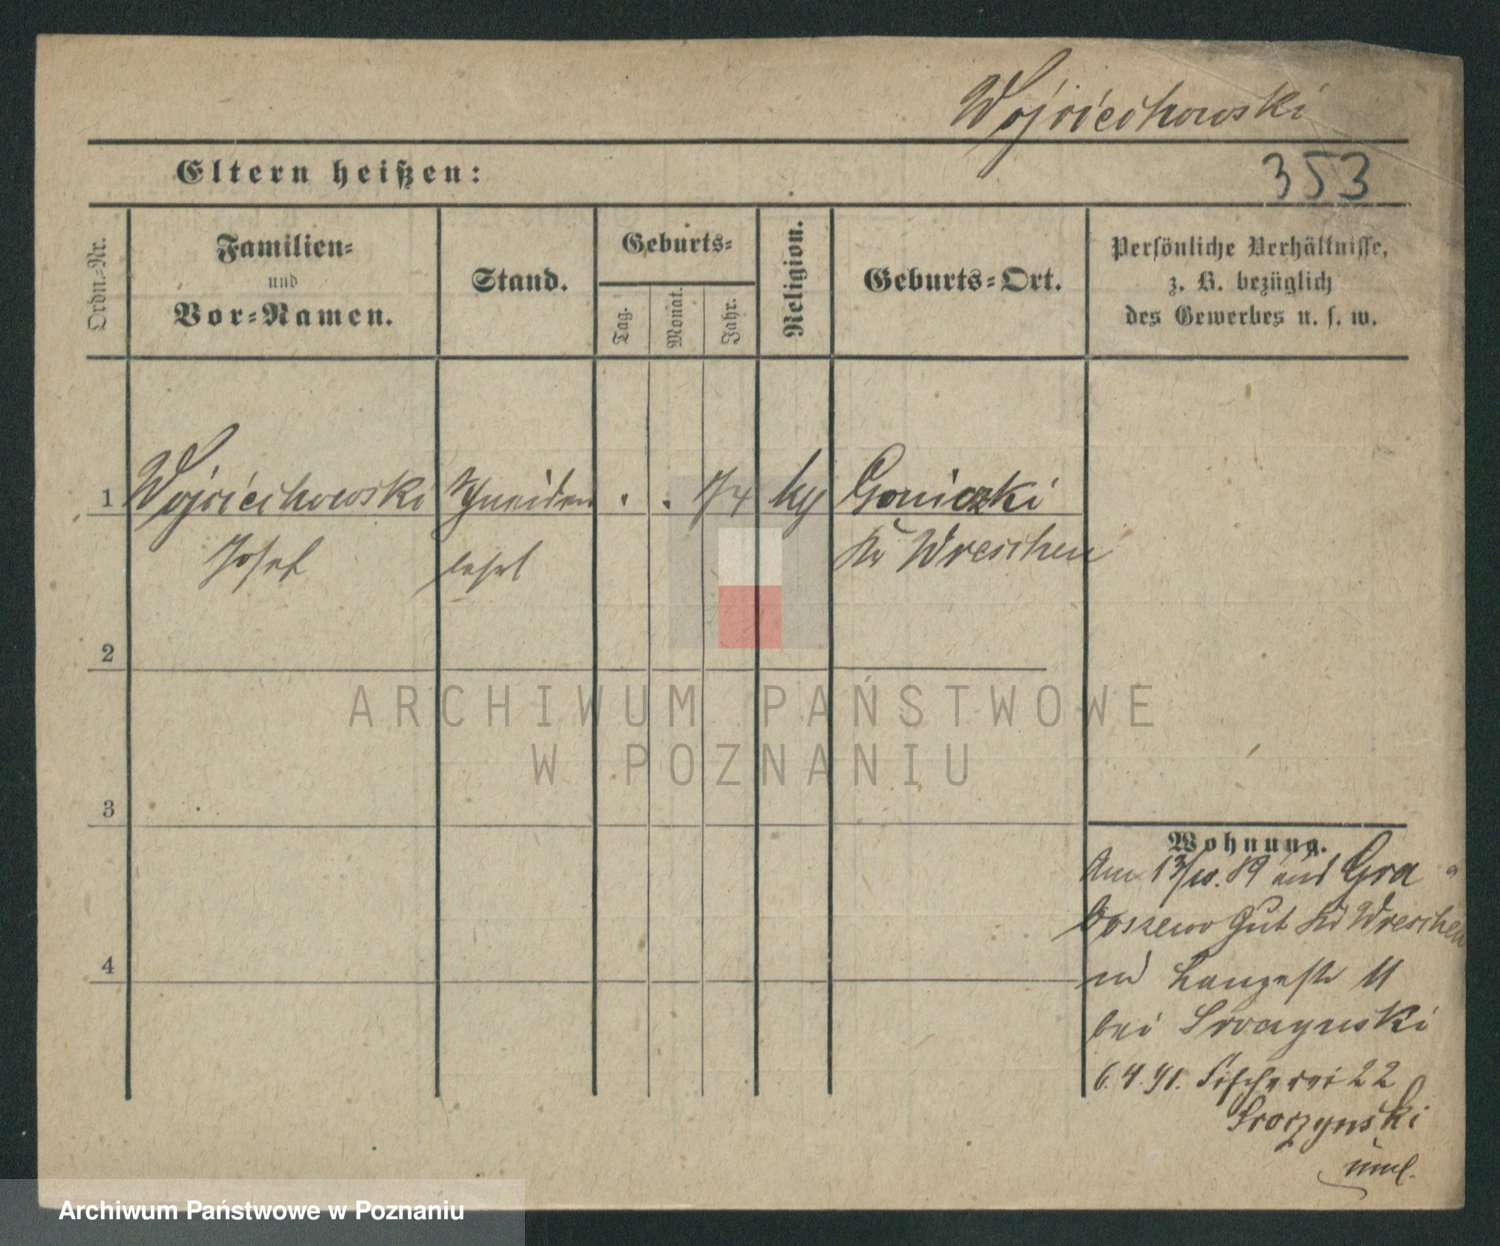 Wojciechowski
Eltern heißen:
353
Ordn.-Nr.
Familien-
und
Vor-Namen.
Stand.
Geburts-
Tag.
Monat.
Jahr.
Religion.
Geburts-Ort.
Persönliche Verhältnisse,
z. B. bezüglich
des Gewerbes u. s. w.
1 Wojciechowski Schneider 74 Goniczki
Josef lehrl Kr Wreschen
2
3
4
Wohnung.
Am 13/10. 89 aus Gra
boszewo Gut Kr Wreschen
Langestr 11
bei Sroczynski
6.4.91. Fischerei 22
Sroczynski
ARCHIWUM PAŃSTWOWE
W POZNANIU
Archiwum Państwowe w Poznaniu